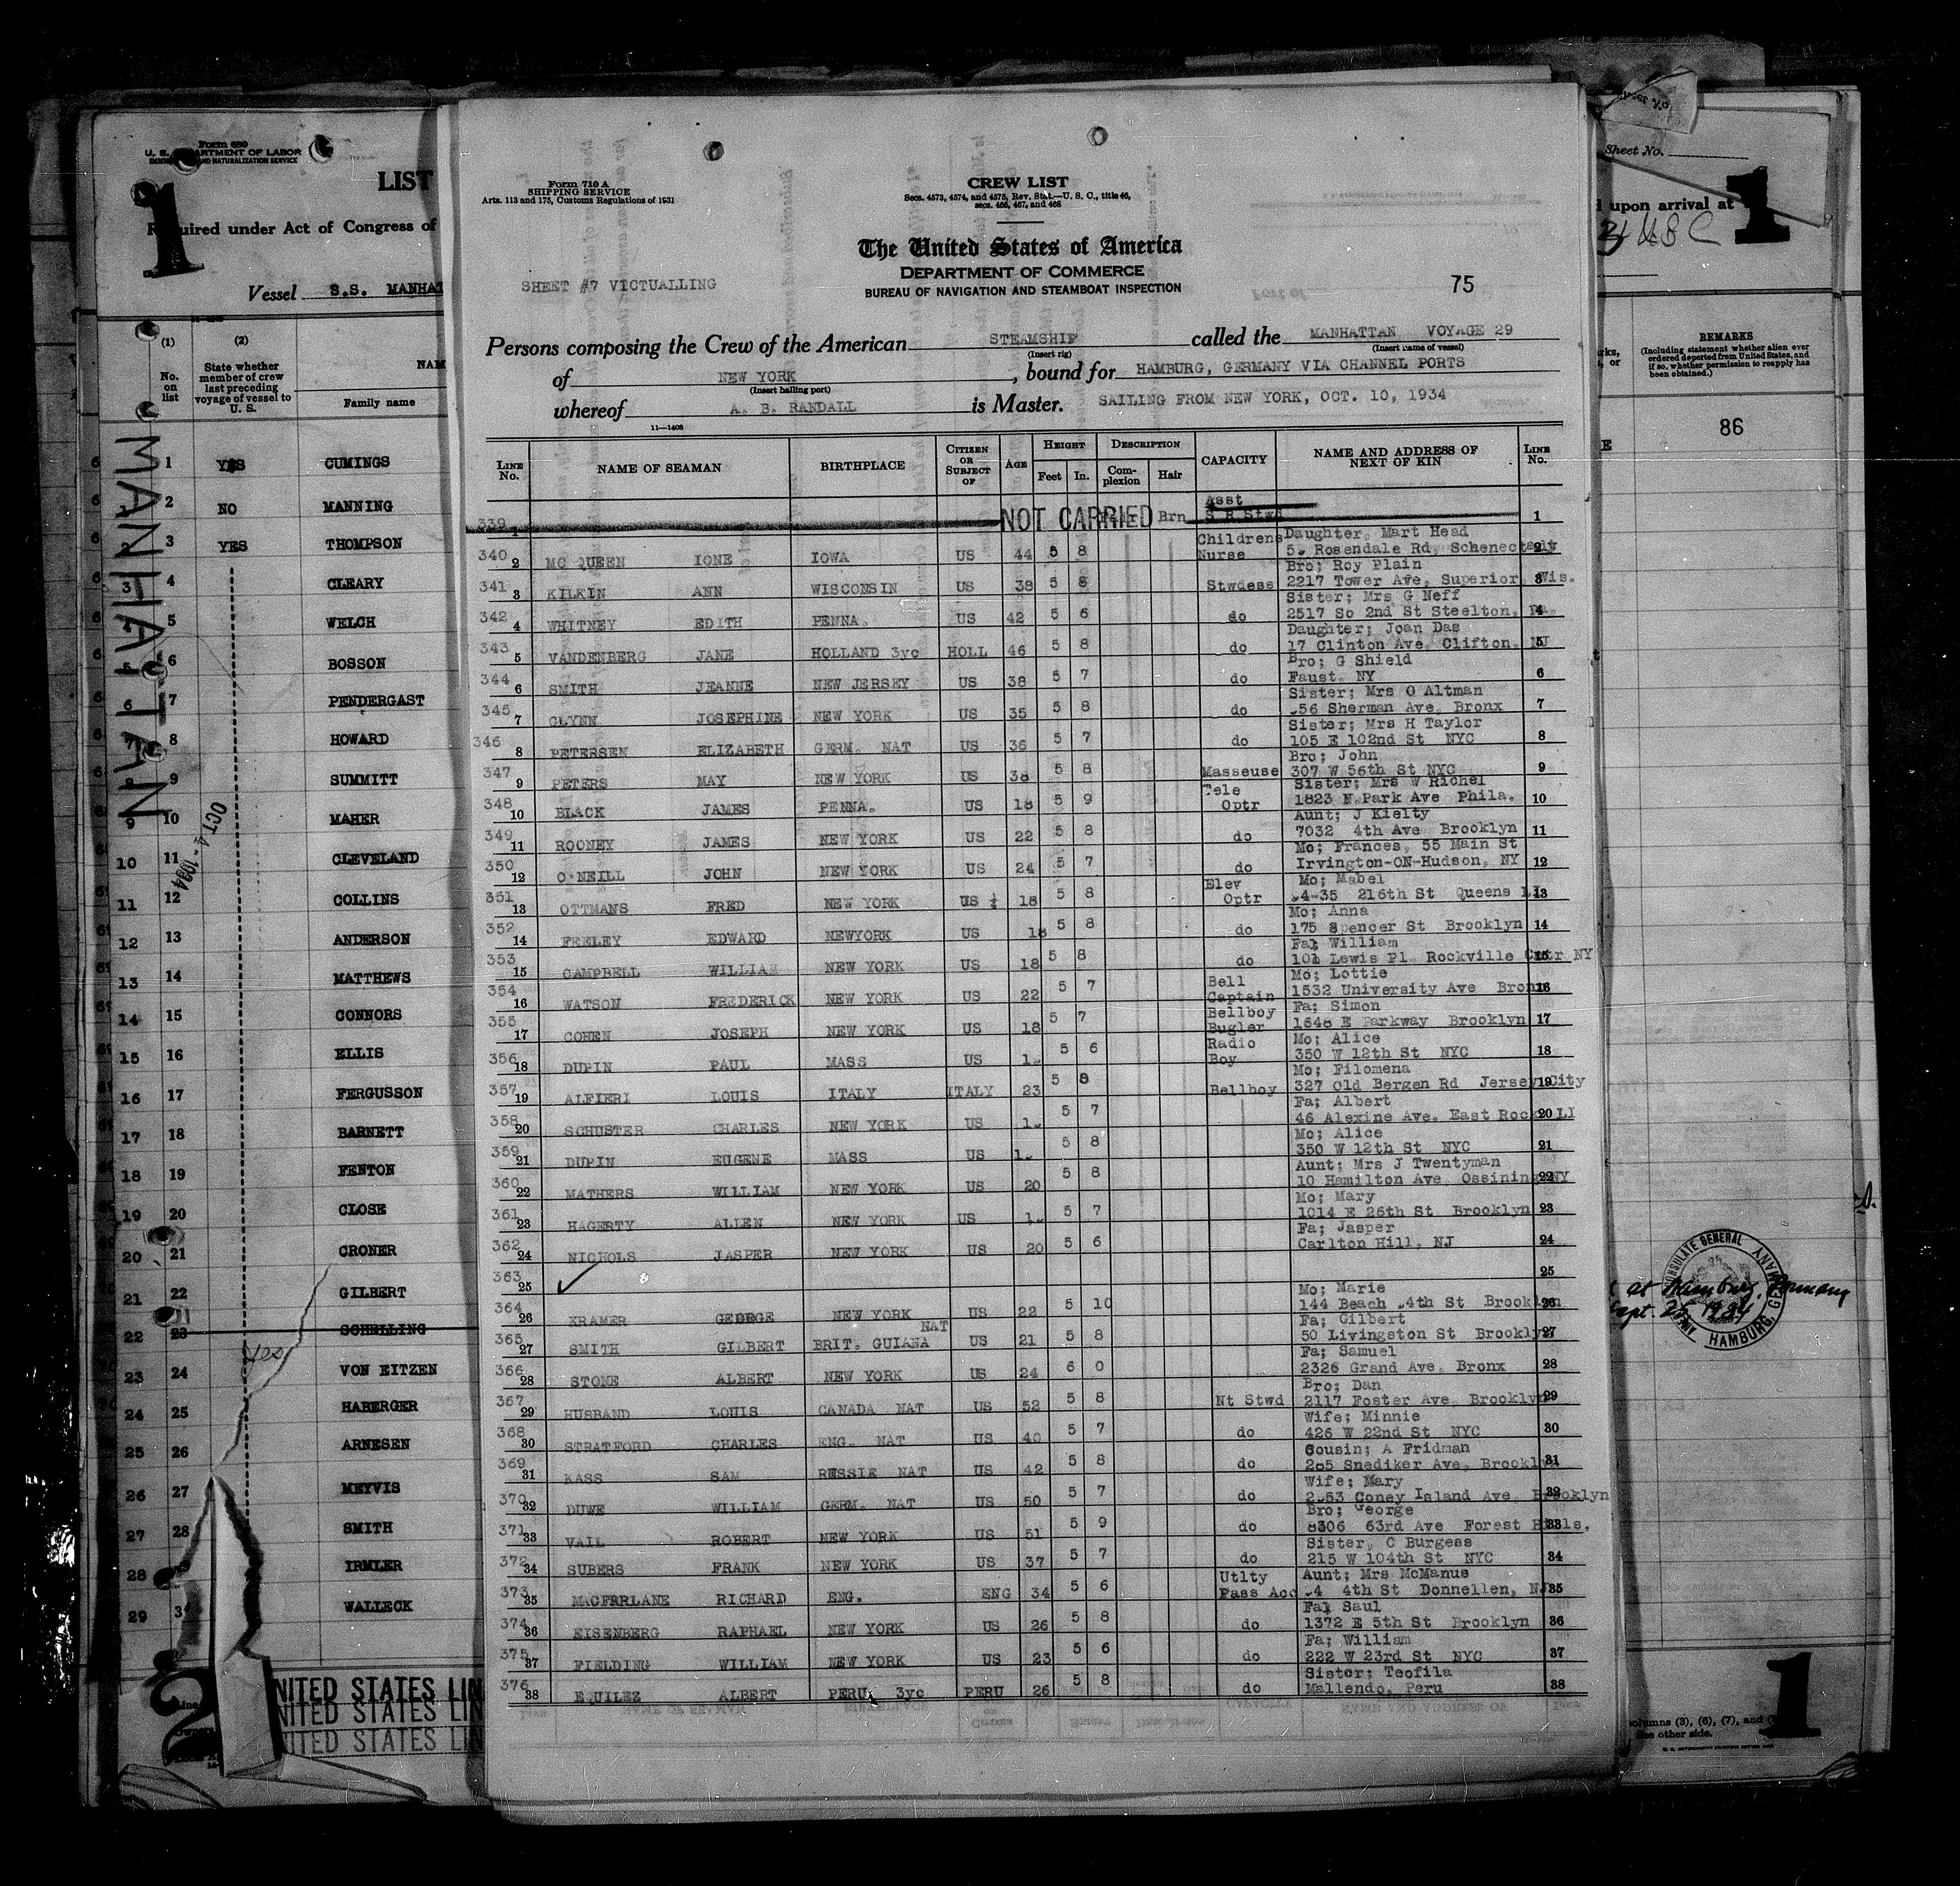 Form 689
U. S. DEPARTMENT OF LABOR
IMMIGRATION AND NATURALIZATION SERVICE
1
LIST
Required under Act of Congress of
Vessel S.S. MANHAT
(1) (2)
No. on list
State whether member of crew last preceding voyage of vessel to U. S.
NAM
Family name
MANHATTAN
1 YES CUMINGS
2 NO MANNING
3 YES THOMPSON
3 4 CLEARY
5 WELCH
5 6 BOSSON
6 7 PENDERGAST
7 8 HOWARD
8 9 SUMMITT
9 10 MAHER
10 11 CLEVELAND
11 12 COLLINS
12 13 ANDERSON
13 14 MATTHEWS
14 15 CONNORS
15 16 ELLIS
16 17 FERGUSSON
17 18 BARNETT
18 19 FENTON
19 20 CLOSE
20 21 CRONER
21 22 GILBERT
22 23 SCHELLING
yes
23 24 VON EITZEN
24 25 HABERGER
25 26 ARNESEN
26 27 MEYVIS
27 28 SMITH
28 IRMLER
29 3 WALLECK
OCT 4 - 1934
2
UNITED STATES LIN
UNITED STATES LIN
UNITED STATES LIN
Form 710 A
SHIPPING SERVICE
Arts. 113 and 175, Customs Regulations of 1931
CREW LIST
Secs. 4573, 4574, and 4575, Rev. Stat.—U. S. C., title 46,
secs. 466, 467, and 468
The United States of America
DEPARTMENT OF COMMERCE
BUREAU OF NAVIGATION AND STEAMBOAT INSPECTION
SHEET #7 VICTUALLING
75
Persons composing the Crew of the American STEAMSHIP called the MANHATTAN VOYAGE 29
(Insert rig) (Insert name of vessel)
of NEW YORK, bound for HAMBURG, GERMANY VIA CHANNEL PORTS
(Insert hailing port)
whereof A. B. RANDALL is Master. SAILING FROM NEW YORK, OCT. 10, 1934
11—1408
LINE No. NAME OF SEAMAN BIRTHPLACE CITIZEN OR SUBJECT OF AGE HEIGHT Feet In. DESCRIPTION Complexion Hair CAPACITY NAME AND ADDRESS OF NEXT OF KIN LINE No.
339 1 NOT CARRIED Brn Asst S R Stwd 1
340 2 MC QUEEN IONE IOWA US 44 5 8 Childrens Nurse Daughter, Mart Head
Rosendale Rd, Schenectady 2
341 3 KILKIN ANN WISCONSIN US 38 5 8 Stwdess Bro; Roy Plain
2217 Tower Ave, Superior Wis. 3
342 4 WHITNEY EDITH PENNA. US 42 5 6 do Sister; Mrs G Neff
2517 So 2nd St Steelton, Pa. 4
343 5 VANDENBERG JANE HOLLAND 3yc HOLL 46 5 8 do Daughter; Joan Das
17 Clinton Ave, Clifton, NJ 5
344 6 SMITH JEANNE NEW JERSEY US 38 5 7 do Bro; G Shield
Faust, NY 6
345 7 GLYNN JOSEPHINE NEW YORK US 35 5 8 do Sister; Mrs O Altman
56 Sherman Ave, Bronx 7
346 8 PETERSEN ELIZABETH GERM. NAT US 36 5 7 do Sister; Mrs H Taylor
105 E 102nd St NYC 8
347 9 PETERS MAY NEW YORK US 38 5 8 Masseuse Bro; John
307 W 56th St NYC 9
348 10 BLACK JAMES PENNA. US 18 5 9 Tele Optr Sister; Mrs W Richel
1823 N.Park Ave Phila. 10
349 11 ROONEY JAMES NEW YORK US 22 5 8 do Aunt; J Kielty
7032 4th Ave Brooklyn 11
350 12 O'NEILL JOHN NEW YORK US 24 5 7 do Mo; Frances, 55 Main St
Irvington-ON-Hudson, NY 12
351 13 OTTMANS FRED NEW YORK US 18 5 8 Elev Optr Mo; Mabel
4-35 216th St Queens LI 13
352 14 FEELEY EDWARD NEWYORK US 18 5 8 do Mo; Anna
175 Spencer St Brooklyn 14
353 15 CAMPBELL WILLIAM NEW YORK US 18 5 8 do Fa; William
101 Lewis Pl. Rockville Cntr NY 15
354 16 WATSON FREDERICK NEW YORK US 22 5 7 Bell Captain Mo; Lottie
1532 University Ave Bronx 16
355 17 COHEN JOSEPH NEW YORK US 18 5 7 Bellboy Bugler Fa; Simon
1648 E Parkway Brooklyn 17
356 18 DUPIN PAUL MASS US 5 6 Radio Boy Mo; Alice
350 W 12th St NYC 18
357 19 ALFIERI LOUIS ITALY ITALY 23 5 8 Bellboy Mo; Filomena
327 Old Bergen Rd Jersey City 19
358 20 SCHUSTER CHARLES NEW YORK US 5 7 Fa; Albert
46 Alexine Ave. East Rock LI 20
359 21 DUPIN EUGENE MASS US 5 8 Mo; Alice
350 W 12th St NYC 21
360 22 MATHERS WILLIAM NEW YORK US 20 5 8 Aunt; Mrs J Twentyman
10 Hamilton Ave, Ossining NY 22
361 23 HAGERTY ALLEN NEW YORK US 5 7 Mo; Mary
1014 E 26th St Brooklyn 23
362 24 NICHOLS JASPER NEW YORK US 20 5 6 Fa; Jasper
Carlton Hill, NJ 24
363 25 25
364 26 KRAMER GEORGE NEW YORK US 22 5 10 Mo; Marie
144 Beach 4th St Brooklyn 26
365 27 SMITH GILBERT BRIT. GUIANA NAT US 21 5 8 Fa; Gilbert
50 Livingston St Brooklyn 27
366 28 STONE ALBERT NEW YORK US 24 6 0 Fa; Samuel
2326 Grand Ave, Bronx 28
367 29 HUSBAND LOUIS CANADA NAT US 52 5 8 Nt Stwd Bro; Dan
2117 Foster Ave, Brooklyn 29
368 30 STRATFORD CHARLES ENG. NAT US 40 5 7 do Wife; Minnie
426 W 22nd St NYC 30
369 31 KASS SAM RUSSIE NAT US 42 5 8 do Cousin; A Fridman
Snediker Ave, Brooklyn 31
370 32 DUWE WILLIAM GERM. NAT US 50 5 7 do Wife; Mary
Coney Island Ave, Brooklyn 32
371 33 VAIL ROBERT NEW YORK US 51 5 9 do Bro; George
8306 63rd Ave Forest Hills, 33
372 34 SUBERS FRANK NEW YORK US 37 5 7 do Sister, C Burgess
215 W 104th St NYC 34
373 35 MACFARLANE RICHARD ENG. ENG 34 5 6 Utlty Pass Acc Aunt; Mrs McManus
4th St Donnellen, NJ 35
374 36 EISENBERG RAPHAEL NEW YORK US 26 5 8 do Fa; Saul
1372 E 5th St Brooklyn 36
375 37 FIELDING WILLIAM NEW YORK US 23 5 6 do Fa; William
222 W 23rd St NYC 37
376 38 EQUILEZ ALBERT PERU 3yc PERU 26 5 8 do Sister; Teofila
Mallendo, Peru 38
Sheet No.
upon arrival at
1
REMARKS
(Including statement whether alien ever ordered deported from United States, and if so, whether permission to reapply has been obtained.)
86
at Hamburg, Germany
Sept. 25, 1934
CONSULATE GENERAL
HAMBURG, GERMANY
columns (3), (6), (7), and
See other side.
1